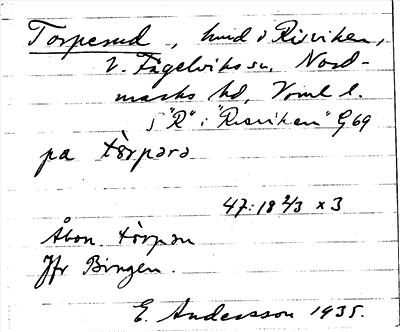 Torperud, hmd i Risviken,
V. Fågelviks sn, Nord-
marks hd, Vrml l.
∫ "R" i "Risviken" G69
pa tòrpərə
47:18 2/3 x 3
Åbon. tòrpən
Jfr Bingen.
E. Andersson 1935.